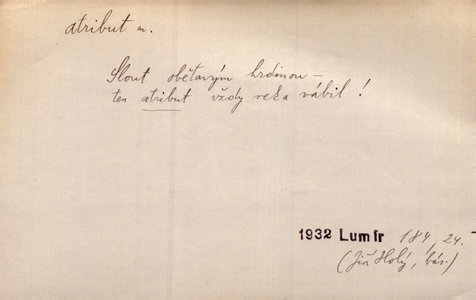 atribut m.
Slout obětavým hrdinou –
ten atribut vždy reka vábil!
1932 Lumír 184, 24.
(Jiří Holý, bás.)